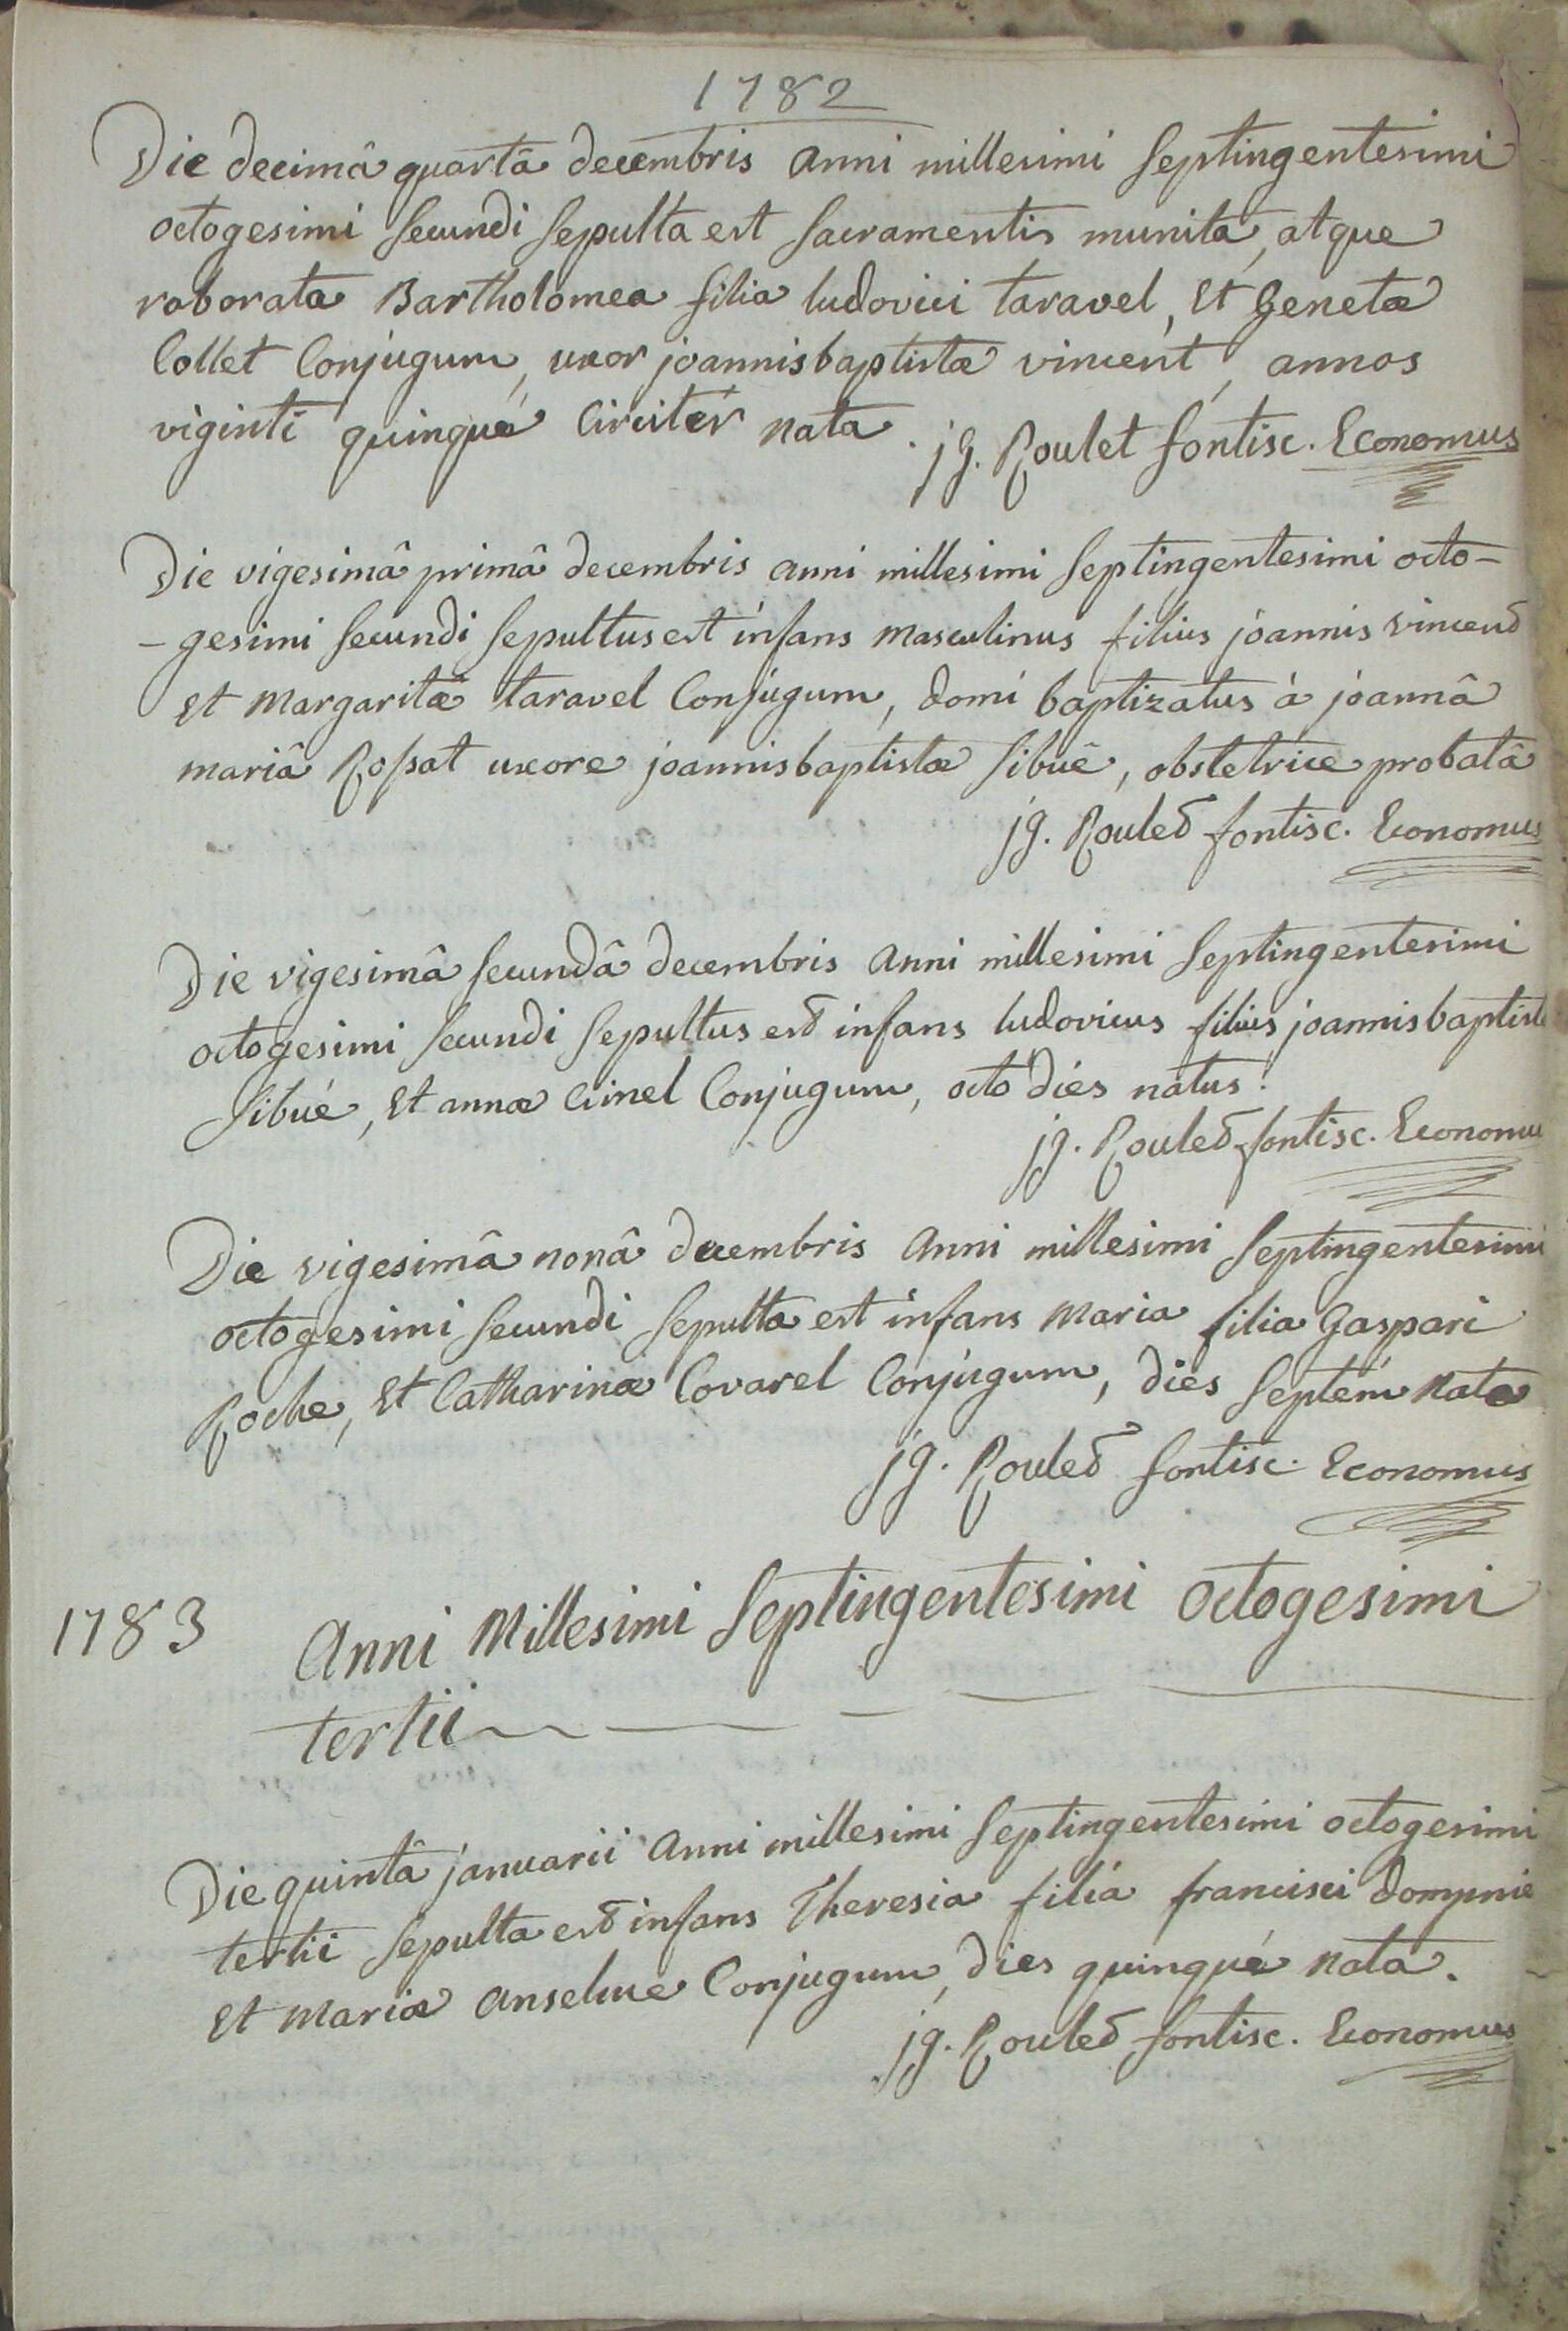 1782
Die decimâ quartâ decembris anni millesimi septingentesimi
octogesimi secundi sepulta est sacramentis munita, atque
roborata Bartholomea filia ludovici taravel, et Genetæ
Collet Conjugum, uxor joannisbaptistæ vincent, annos
viginti quinqué Circitér nata. jg. Roulet fontisc. Economus
Die vigesimâ primâ decembris anni millesimi septingentesimi octo-
-gesimi secundi sepultus est infans masculinus filius joannis vincend
et margaritæ taravel Conjugum, domi baptizatus à joannâ
mariâ Rossat uxore joannisbaptistæ sibuë, obstetrice probatâ
jg. Rouled fontisc. Economus
Die vigesimâ secundâ decembris anni millesimi septingentesimi
octogesimi secundi sepultus est infans ludovicus filius joannisbaptistæ
sibué, et annæ Cinel Conjugum, octo diés natus.
jg. Rouled fontisc. Economu
Die vigesimâ nonâ decembris anni millesimi septingentesimi
octogesimi secundi sepulta est infans maria filia gaspari
Roche, et Catharinæ Covarel Conjugum, dies septém nata
jg. Rouled fontisc. Economus
1783 Anni Millesimi septingentesimi octogesimi
tertii
Die quintâ januarii anni millesimi septingentesimi octogesimi
tertii sepulta est infans Theresia filia francisci dompnie
et mariæ anselme Conjugum, dies quinqué nata.
jg. Rouled fontisc. Economus